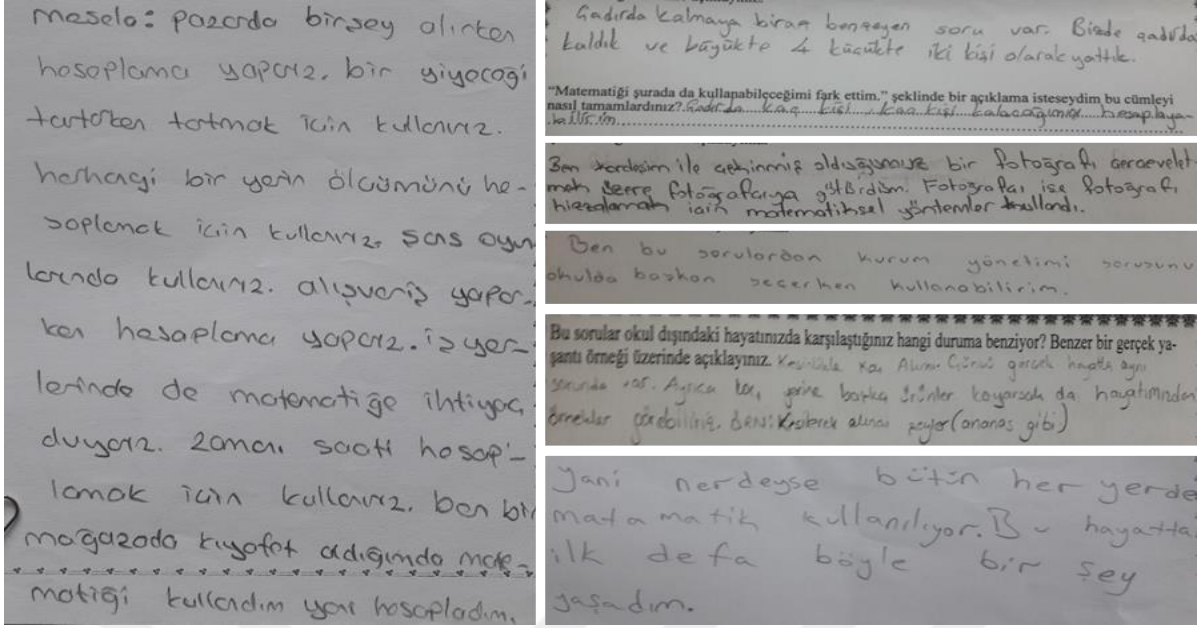 mesela: pazarda birşey alırken
hesaplama yaparız. bir yiyeceği
tartarken tartmak için kullanırız.
herhagi bir yerin ölçümünü he-
saplamak için kullanırız. şans oyun
larında kullanırız. alışveriş yapar-
ken hesaplama yaparız. iş yer-
lerinde de matematiğe ihtiyaç
duyarız. zamanı saati hesap-
lamak için kullanırız. ben bir
mağazada kıyafet adığımda mate-
matiği kullandım yani hesapladım.
Çadırda kalmaya biraz benzeyen soru var. Bizde çadırda
kaldık ve büyükte 4 küçükte iki kişi olarak yattık.
"Matematiği şurada da kullanabileceğimi fark ettim." şeklinde bir açıklama isteseydim bu cümleyi
nasıl tamamlardınız? Çadırda kaç kişi, kaç kişi kalacağımızı hesaplaya-
bilirim.
Ben kardeşim ile çekinmiş olduğumuz bir fotoğrafı çerçevelet
mek üzere fotoğrafçıya götürdüm. Fotoğrafçı ise fotoğrafı
hizalamak için matematiksel yöntemler kullandı.
Ben bu sorulardan kurum yönetimi sorusunu
okulda başkan seçerken kullanabilirim.
Bu sorular okul dışındaki hayatınızda karşılaştığınız hangi duruma benziyor? Benzer bir gerçek ya-
şantı örneği üzerinde açıklayınız. Kesinlikle Kaz Alımı. Çünkü gerçek hayatta aynı
sorunda var. Ayrıca kaz yerine başka ürünler koyarsak da hayatımızdan
örnekler görebiliriz. alınan şeyler (ananas gibi)
Yani nerdeyse bütün her yerde
matamatik kullanılıyor. Bu hayatta
ilk defa böyle bir şey
yaşadım.